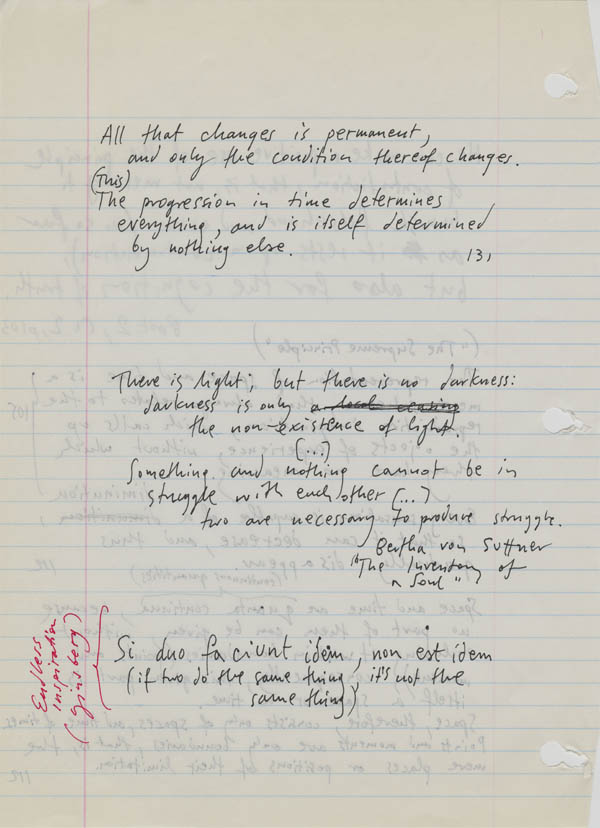 All that changes is permanent,
and only the condition thereof changes.
(This)
The progression in time determines
everything, and is itself determined
by nothing else. 131
There is light; but there is no darkness:
darkness is only
the non-existence of light.
(...)
Something and nothing cannot be in
struggle with each other (...)
two are necessary to produce struggle.
Bertha von Suttner
"The Inventory of
a Soul"
Endless
inspiration
(Ginsberg)
Si duo faciunt idem, non est idem
(if two do the same thing, it's not the
same thing)